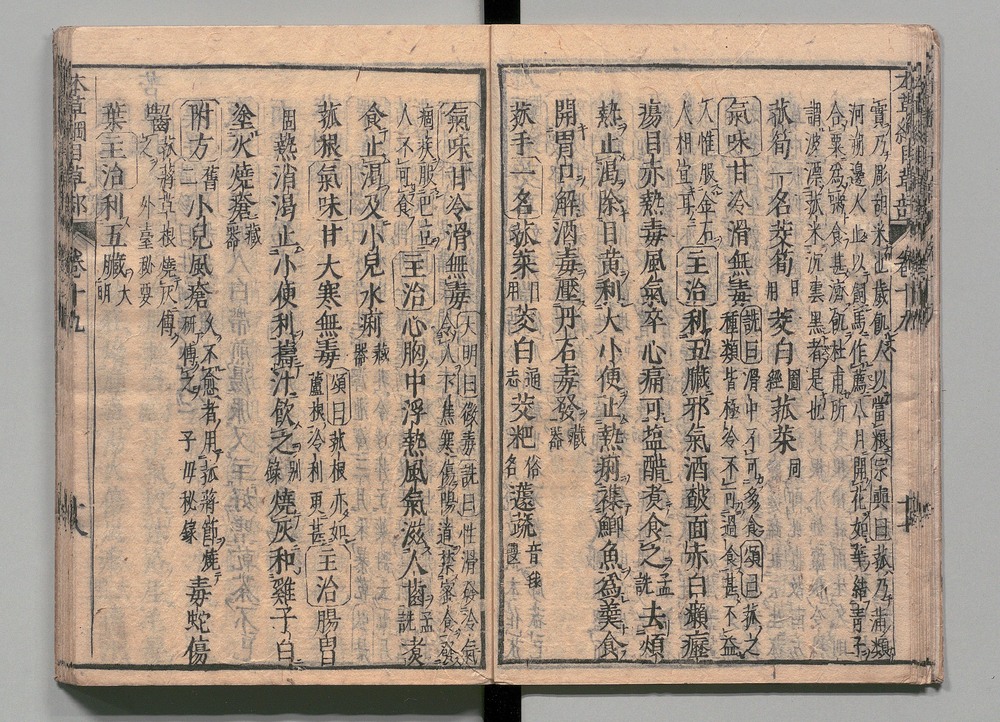 實乃彫胡米也歲飢人以當粮宗奭曰菰乃蒲類
河朔邊人止以飼馬作薦八月開花如葦結青子
合粟為粥食甚濟飢杜甫所
謂波漂菰米沉雲黑者是也
菰筍一名茭筍日用茭白圖經菰菜同
氣味甘冷滑無毒詵曰滑中不可多食頌曰菰之
種類皆極冷不可過食甚不益
人惟服金石
人相宜耳主治利五臟邪氣酒皶面赤白癩癧
瘍目赤熱毒風氣卒心痛可盐醋煮食之孟詵去煩
熱止渴除目黃利大小便止熱痢雜鯽魚為羹食
開胃口解酒毒壓丹石毒發藏器
菰手一名菰菜日用茭白通志茭粑俗名蘧蔬音氍
氣味甘冷滑無毒大明曰微毒詵曰性滑發冷氣
令人下焦寒傷陽道禁蜜食發
痼疾服巴豆
人不可食主治心胸中浮熱風氣滋人齒孟詵煮
食止渴及小兒水痢藏器
菰根氣味甘大寒無毒頌曰菰根亦如
蘆根冷利更甚主治腸胃
固熱消渴止小便利擣汁飲之別錄燒灰和雞子白
塗火燒瘡藏器
附方舊二小兒風瘡久不愈者用菰蔣節燒
研傅之 子母秘錄毒蛇傷
囓菰蔣草根燒灰傅
之 外臺秘要
葉主治利五臟大明
本草綱目草部 卷十九